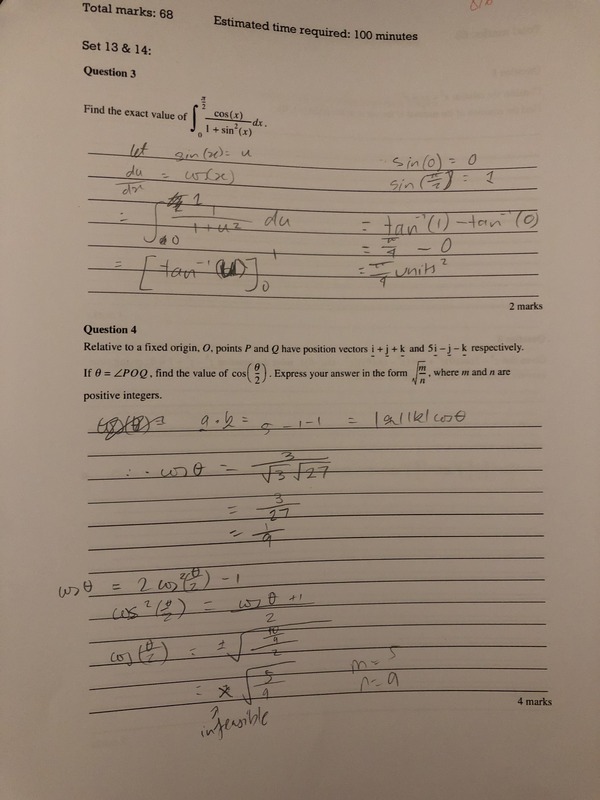 Total marks: 68
Estimated time required: 100 minutes
Set 13 & 14:
Question 3
Find the exact value of ∫₀^(π/2) cos(x)/(1 + sin²(x)) dx.
let sin(x) = u
du/dx = cos(x)
sin(0) = 0
sin(π/2) = 1
= ∫₀¹ 1/(1+u²) du
= [tan⁻¹(u)]₀¹
= tan⁻¹(1) − tan⁻¹(0)
= π/4 − 0
= π/4 units²
2 marks
Question 4
Relative to a fixed origin, O, points P and Q have position vectors i + j + k and 5i − j − k respectively.
If θ = ∠POQ, find the value of cos(θ/2). Express your answer in the form √(m/n), where m and n are
positive integers.
a · b = 5 −1 −1 = |a||b| cosθ
∴ cosθ = 3/(√3 √27)
= 3/27
= 1/9
cosθ = 2cos²(θ/2) − 1
cos²(θ/2) = (cosθ + 1)/2
cos(θ/2) = ±√((10/9)/2)
= √(5/9)
m = 5
n = 9
infeasible
4 marks